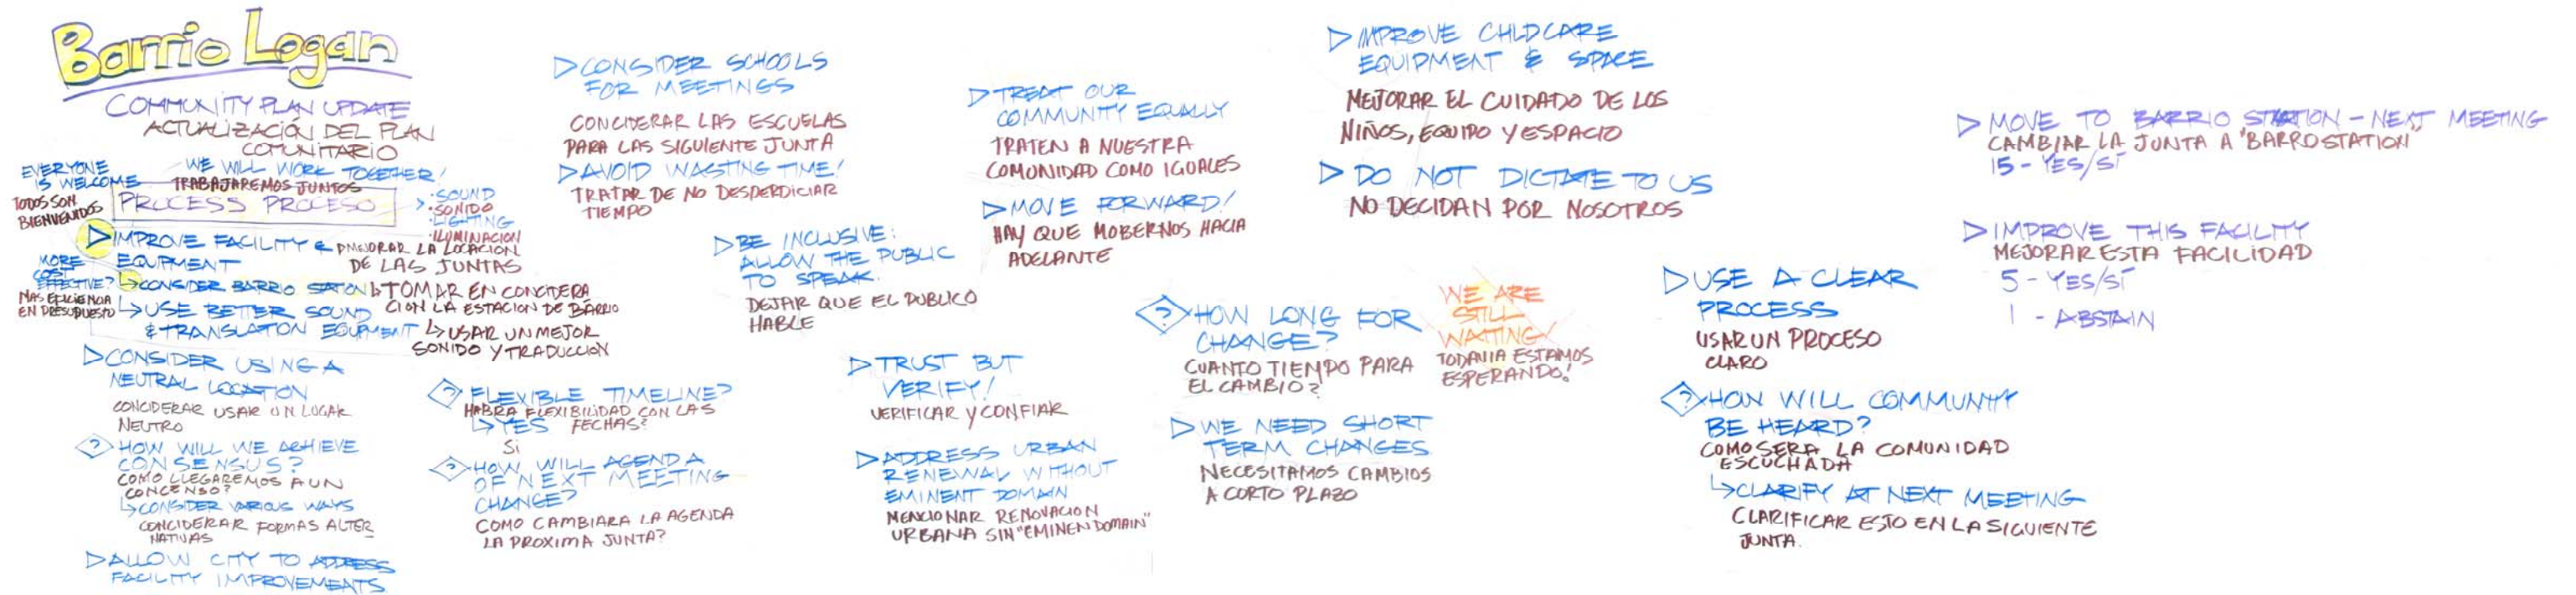 Barrio Logan
COMMUNITY PLAN UPDATE
ACTUALIZACIÓN DEL PLAN
COMUNITARIO
EVERYONE
IS WELCOME
TODOS SON
BIENVENIDOS
WE WILL WORK TOGETHER!
TRABAJAREMOS JUNTOS
PROCESS PROCESO
· SOUND
· SONIDO
· LIGHTING
· ILUMINACION
IMPROVE FACILITY &
EQUIPMENT
MEJORAR LA LOCACION
DE LAS JUNTAS
MORE
COST
EFFECTIVE?
MAS EFICIENCIA
EN PRESUPUESTO
CONSIDER BARRIO STATION
TOMAR EN CONCIDERA
CION LA ESTACION DE BARRIO
USE BETTER SOUND
& TRANSLATION EQUIPMENT
USAR UN MEJOR
SONIDO Y TRADUCCION
CONSIDER USING A
NEUTRAL LOCATION
CONCIDERAR USAR UN LUGAR
NEUTRO
? HOW WILL WE ACHIEVE
CONSENSUS?
COMO LLEGAREMOS A UN
CONCENSO?
CONSIDER VARIOUS WAYS
CONCIDERAR FORMAS ALTER
NATIVAS
ALLOW CITY TO ADDRESS
FACILITY IMPROVEMENTS
CONSIDER SCHOOLS
FOR MEETINGS
CONCIDERAR LAS ESCUELAS
PARA LAS SIGUIENTE JUNTA
AVOID WASTING TIME!
TRATAR DE NO DESPERDICIAR
TIEMPO
BE INCLUSIVE:
ALLOW THE PUBLIC
TO SPEAK.
DEJAR QUE EL PUBLICO
HABLE
? FLEXIBLE TIMELINE?
HABRA FLEXIBILIDAD CON LAS
FECHAS?
YES
SI
? HOW WILL AGENDA
OF NEXT MEETING
CHANGE?
COMO CAMBIARA LA AGENDA
LA PROXIMA JUNTA?
TRUST BUT
VERIFY!
VERIFICAR Y CONFIAR
ADDRESS URBAN
RENEWAL WITHOUT
EMINENT DOMAIN
MENCIONAR RENOVACION
URBANA SIN "EMINEN DOMAIN"
TREAT OUR
COMMUNITY EQUALLY
TRATEN A NUESTRA
COMUNIDAD COMO IGUALES
MOVE FORWARD!
HAY QUE MOBERNOS HACIA
ADELANTE
? HOW LONG FOR
CHANGE?
CUANTO TIEMPO PARA
EL CAMBIO?
WE ARE
STILL
WAITING!
TODAVIA ESTAMOS
ESPERANDO!
WE NEED SHORT
TERM CHANGES
NECESITAMOS CAMBIOS
A CORTO PLAZO
IMPROVE CHILDCARE
EQUIPMENT & SPACE
MEJORAR EL CUIDADO DE LOS
NIÑOS, EQUIPO Y ESPACIO
DO NOT DICTATE TO US
NO DECIDAN POR NOSOTROS
USE A CLEAR
PROCESS
USAR UN PROCESO
CLARO
? HOW WILL COMMUNITY
BE HEARD?
COMO SERA LA COMUNIDAD
ESCUCHADA
CLARIFY AT NEXT MEETING
CLARIFICAR ESTO EN LA SIGUIENTE
JUNTA.
MOVE TO BARRIO STATION - NEXT MEETING
CAMBIAR LA JUNTA A "BARRO STATION"
15 - YES/SÍ
IMPROVE THIS FACILITY
MEJORAR ESTA FACILIDAD
5 - YES/SÍ
1 - ABSTAIN